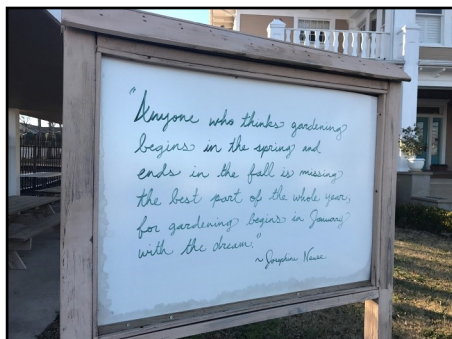 "Anyone who thinks gardening
begins in the spring and
ends in the fall is missing
the best part of the whole year;
for gardening begins in January
with the dream."
~ Josephine Nuese